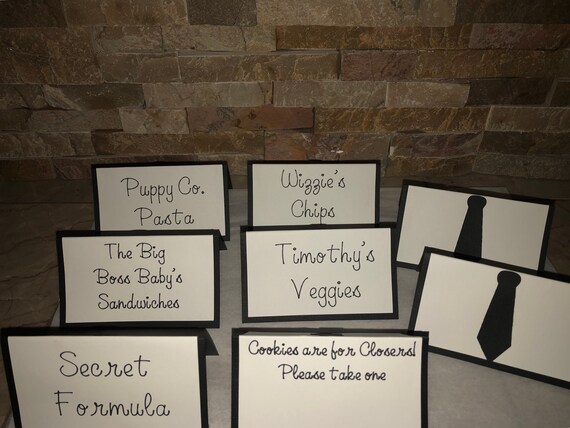 Puppy Co.
Pasta
Wizzie's
Chips
The Big
Boss Baby's
Sandwiches
Timothy's
Veggies
Secret
Formula
Cookies are for Closers!
Please take one